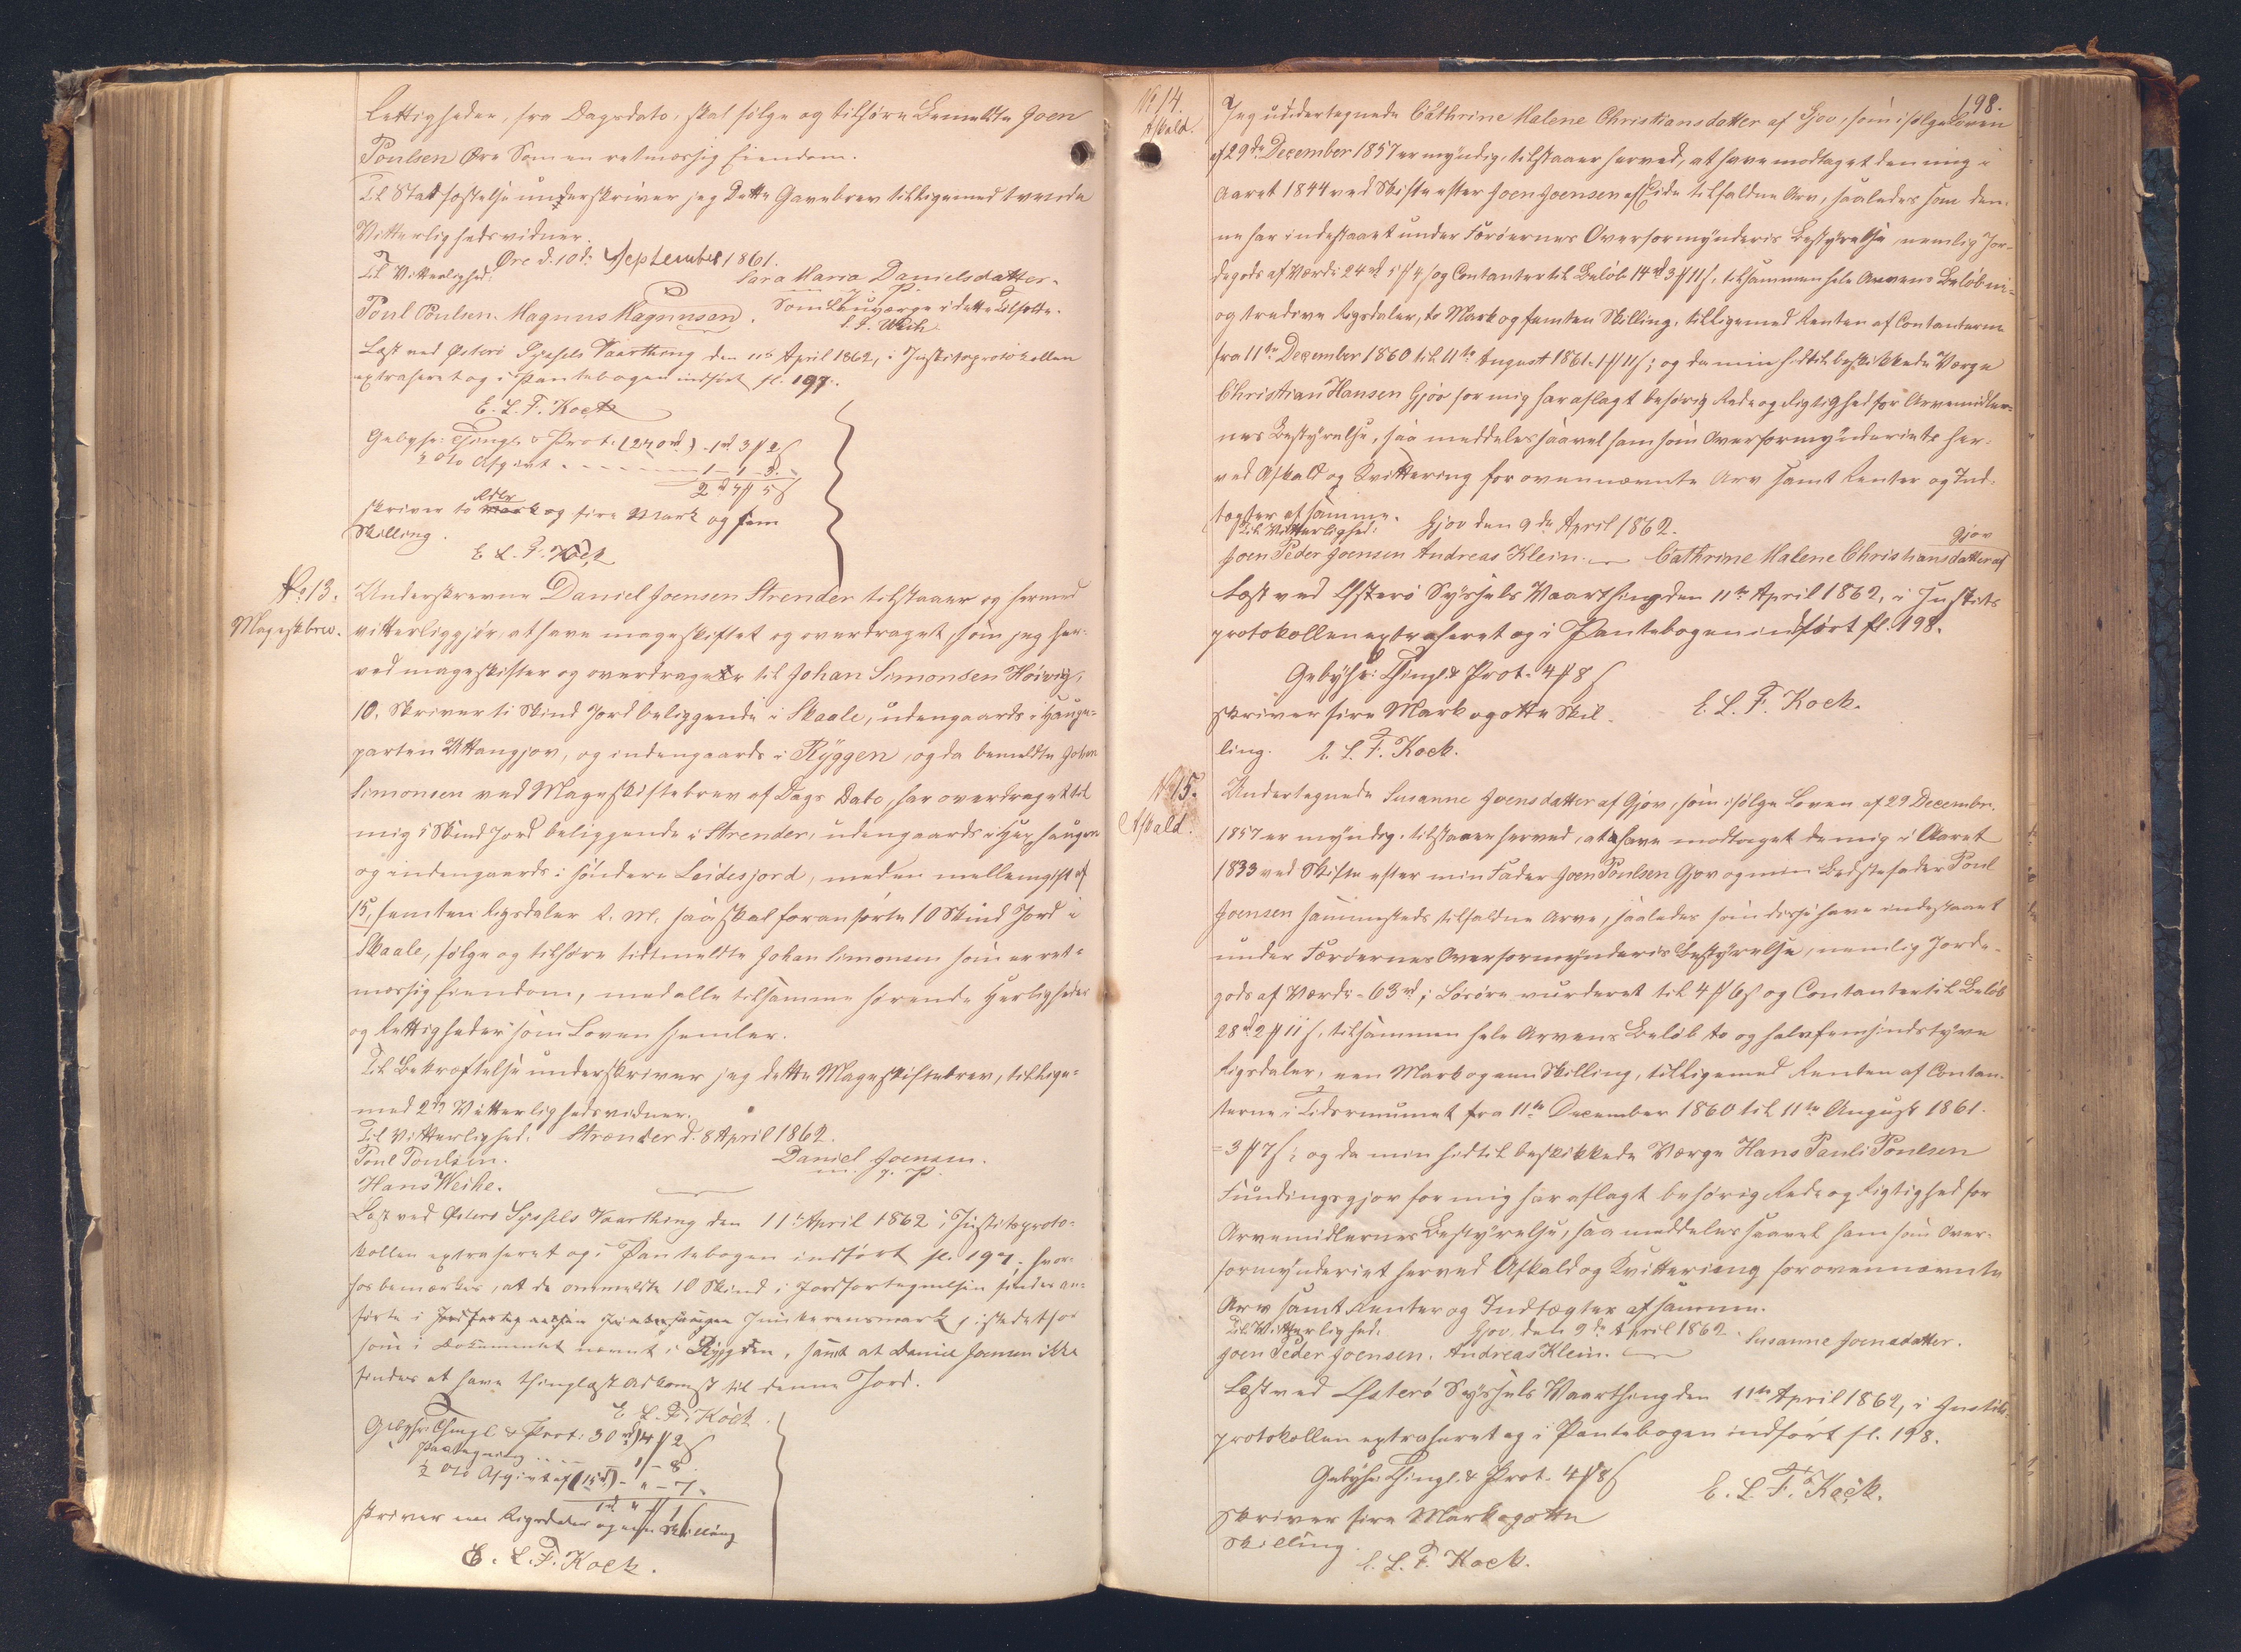 Rettigheder, fra Dagsdato, skal følge og tilhøre Bemeldte Joen
Poulsen Øre Som en retmæssig Eiendom.
Til Stadfæstelse underskriver jeg Dette Gavebrev tilligemed tvende
Vitterlighedsvidner.
Øre d. 10de September 1861.
Til Vitterlighed:
Sara Maria Danielsdatter.
m. f. P.
Poul Poulsen. Magnus Magnussen.
Som Lauværge i dette Tilfælde.
Læst ved Østerø Syssels Vaarthing den 11te April 1862, i Justitsprotokollen
extraheret og i Pantebogen indført fl. 197.
E. L. F. Kock
Gebyhr: Thingl. & Prot. (240 rd) - 1 rd 3 ℔ 2 ß
½ % Afgivt - - - 1 - 1 - 3.
2 rd 4 ℔ 5 ß
skriver to Rdlr og fire Mark og fem
Skilling.
E. L. F. Kock
No 13.
Mageskbrev.
Underskrevne Daniel Joensen Strender tilstaaer og hermed
vitterliggjør, at have mageskiftet og overdraget, som jeg her-
ved mageskifter og overdrager til Johan Simonsen Høivig,
10. Skriver ti Skind Jord beliggende i Skaale, udengaards i Hauge-
parten Uttangjov, og indengaards i Ryggen, og da bemeldte Johan
Simonsen ved Mageskiftebrev af Dags Dato, har overdraget til
mig 5 Skind Jord beliggende i Strender, udengaards i Huushaugen
og indengaards i søndere Leidesjord, med en mellemgift af
15, femten Rigsdaler R. M. saa skal foranførte 10 Skind Jord i
Skaale, følge og tilhøre tidtmeldte Johan Simonsen som en ret-
mæssig Eiendom, med alle tilsamme hørende Herligheder
og Rettigheder som Loven hjemler.
Til Bekræftelse underskriver jeg dette Mageskiftebrev, tillige-
med 2de Vitterlighedsvidner.
Til Vitterlighed: Strænder d. 8 April 1862.
Poul Poulsen.
Daniel Joensen.
m. f. P.
Hans Weihe.
Læst ved Østerø Syssels Vaarthing den 11te April 1862 i Justitsproto-
kollen extraheret og i Pantebogen indført fl. 197; hvor-
hos bemærkes, at de ommeldte 10 Skind i Jordfortegnelsen findes an-
førte i Junkerensmark, istedetfor
som i Dokumentet nævnt i Ryggen, samt at Daniel Joensen ikke
findes at have thinglæst Adkomst til denne Jord.
E. L. F. Kock.
Gebyhr: Thingl & Prot: 30 rd) 4 ℔ 2 ß
Paategning - - - 1 - 8.
½ % Afgivt af (15 rd) - " - 7.
1 rd " ℔ 1 ß
skriver een Rigsdaler og een Skilling
E. L. F. Kock.
198.
No 14.
Afkald.
Jeg undertegnede Cathrine Malene Christiansdatter af Gjov, som ifølge Loven
af 29de December 1857 er myndig, tilstaaer herved, at have modtaget den mig i
Aaret 1844 ved Skifte efter Joen Joensen af Eide tilfaldne Arv, saaledes som den-
ne har indestaaet under Færøernes Overformynderis Bestyrelse, nemlig Jor-
degods af Værdi 24 rd 5 ℔ 4 ß og Contanter til Beløb 14 rd 3 ℔ 11 ß, tilsammen hele Arvens Beløb ni-
og tredive Rigsdaler, to Mark og femten Skilling, tilligemed Renten af Contanterne
fra 11te December 1860 til 11te August 1861. 1 ℔ 11 ß; og da min hidtil beskikkede Værge
Christian Hansen Gjov for mig har aflagt behørig Rede og Rigtighed for Arvemidler-
nes Bestyrelse, saa meddeles saavel ham som Overformynderiet her-
ved Afkald og Kvittering for ovennævnte Arv samt Renter og Ind-
tægter af samme.
Til Vitterlighed: Gjov den 9de April 1862.
Joen Peder Joensen Andreas Klein. Cathrine Malene Christiansdatter af
Gjov
Læst ved Østerø Syssels Vaarthing den 11te April 1862, i Justits
protokollen extraheret og i Pantebogen indført fl. 198.
Gebyhr: Thingl. & Prot. 4 ℔ 8 ß
skriver fire Mark og otte Skil-
ling.
E. L. F. Kock.
E. L. F. Kock.
No 15.
Afkald.
Undertegnede Susanne Joensdatter af Gjov, som ifølge Loven af 29 Decembr.
1857 er myndig, tilstaaer herved, at have modtaget de mig i Aaret
1833 ved Skifte efter min Fader Joen Poulsen Gjov og min Bedstefader Poul
Joensen sammesteds tilfaldne Arve, saaledes som disse have indestaaet
under Færøernes Overformynderis Bestyrelse, nemlig Jorde-
gods af Værdi - 63 rd; Løsøre vurderet til 4 ℔ 6 ß og Contanter til Beløb
28 rd 2 ℔ 11 ß, tilsammen hele Arvens Beløb to og halvfemsindstyve
Rigsdaler, een Mark og een Skilling, tilligemed Renten af Contan-
terne i Tidsrummet fra 11te December 1860 til 11te August 1861.
= 3 ℔ 7 ß; og da min hidtil beskikkede Værge Hans Pauli Poulsen
Fundingsgjov for mig har aflagt behørig Rede og Rigtighed for
Arvemidlernes Bestyrelse, saa meddeles saavel ham som Over-
formynderiet herved Afkald og Kvittering for ovennævnte
Arv samt Renter og Indtægter af samme.
Til Vitterlighed. Gjov, den 9de April 1862.
Joen Peder Joensen. Andreas Klein. Susanne Joensdatter.
Læst ved Østerø Syssels Vaarthing den 11te April 1862, i Justits
protokollen extraheret og i Pantebogen indført fl. 198.
Gebyhr: Thingl. & Prot. 4 ℔ 8 ß
E. L. F. Kock.
skriver fire Mark og otte
Skilling.
E. L. F. Kock.